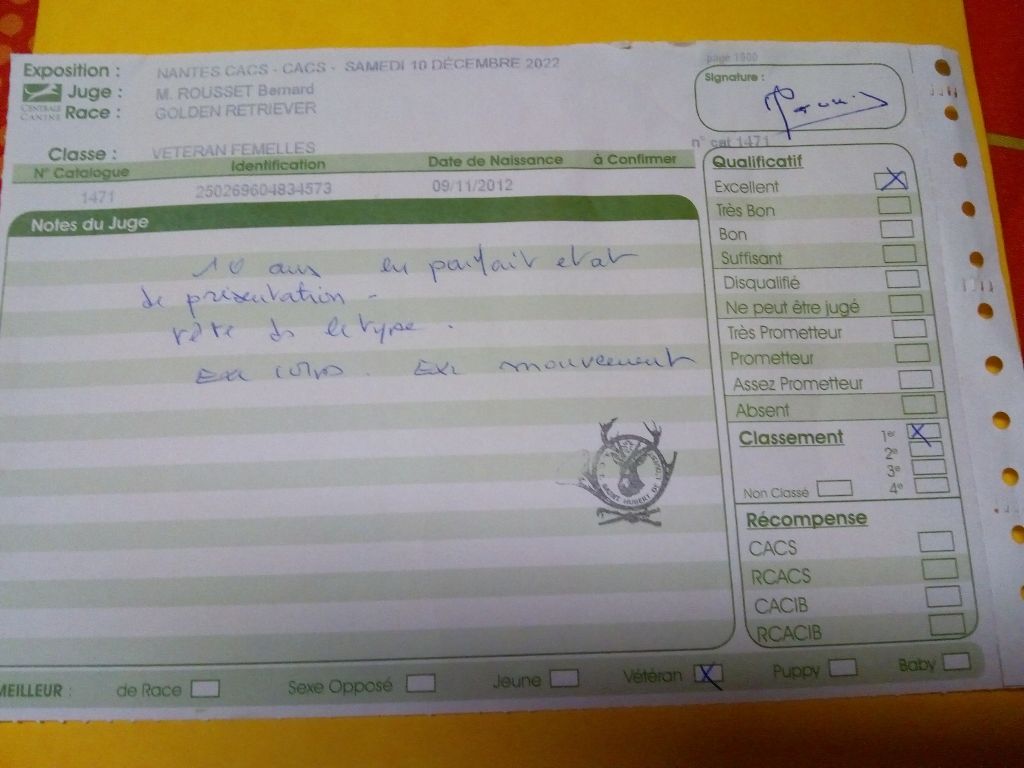 page 1900
Exposition : NANTES CACS - CACS - SAMEDI 10 DÉCEMBRE 2022
Juge : M. ROUSSET Bernard
CENTRALE CANINE
Race : GOLDEN RETRIEVER
Signature :
Classe : VETERAN FEMELLES
n° cat 1471
N° Catalogue Identification Date de Naissance à Confirmer
1471 250269604834573 09/11/2012
Notes du Juge
10 ans en parfait etat
de présentation -
tête ds le type .
Exc corps . Exc mouvement
SAINT HUBERT DE
Qualificatif
Excellent X
Très Bon
Bon
Suffisant
Disqualifié
Ne peut être jugé
Très Prometteur
Prometteur
Assez Prometteur
Absent
Classement 1er X
2e
3e
Non Classé 4e
Récompense
CACS
RCACS
CACIB
RCACIB
MEILLEUR : de Race Sexe Opposé Jeune Vétéran X Puppy Baby